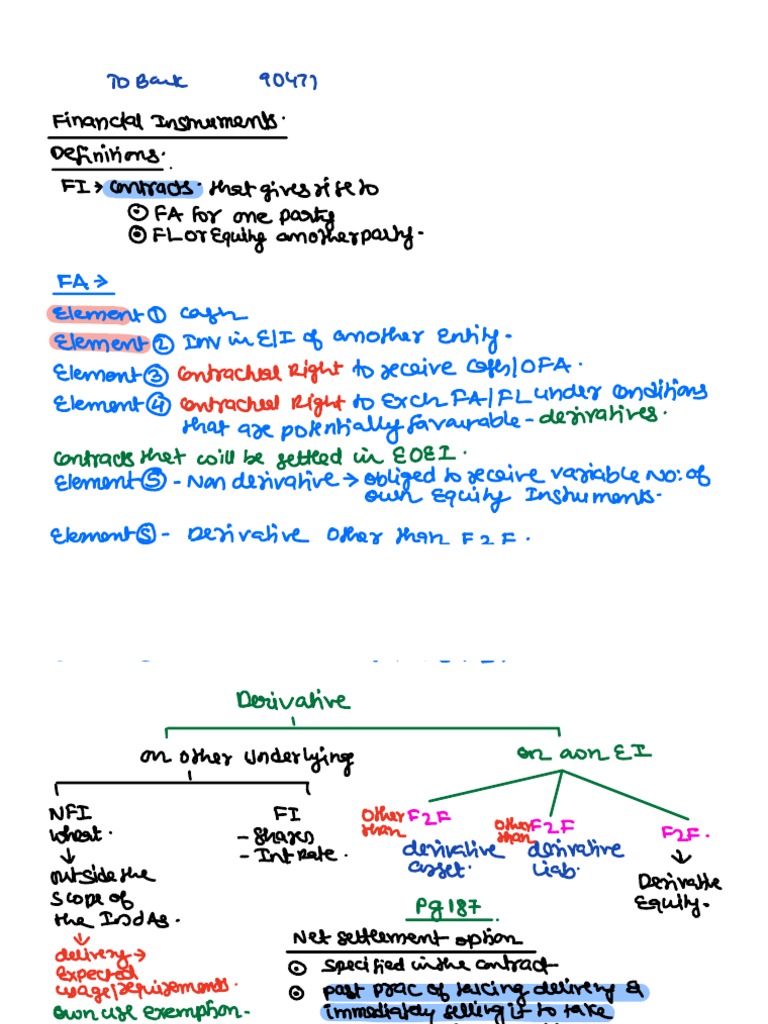 To Bank 90471
Financial Instruments.
Definitions.
FI → contracts. that gives rise to
① FA for one party
② FL or Equity another party.
FA →
Element ① cash
Element ② Inv in E/I of another Entity.
Element ③ Contractual Right to receive Cash/OFA.
Element ④ Contractual Right to Exch FA/FL under conditions
that are potentially favourable - derivatives.
Contracts that will be settled in EOEI.
Element ⑤ - Non derivative → obliged to receive variable No: of
own Equity Instruments.
Element ⑤ - Derivative other than F2F.
Derivative
on other underlying
on own EI
NFI
wheat.
↓
outside the
scope of
the IndAs.
↓
delivery →
Expected
usage/requirements.
own use exemption.
FI
- Shares
- Int Rate.
other than F2F
derivative
asset.
other than F2F
derivative
Liab.
F2F.
↓
Derivative
Equity.
Pg 187
Net settlement option
⊙ specified in the contract
⊙ past prac of taking delivery &
immediately selling it to take